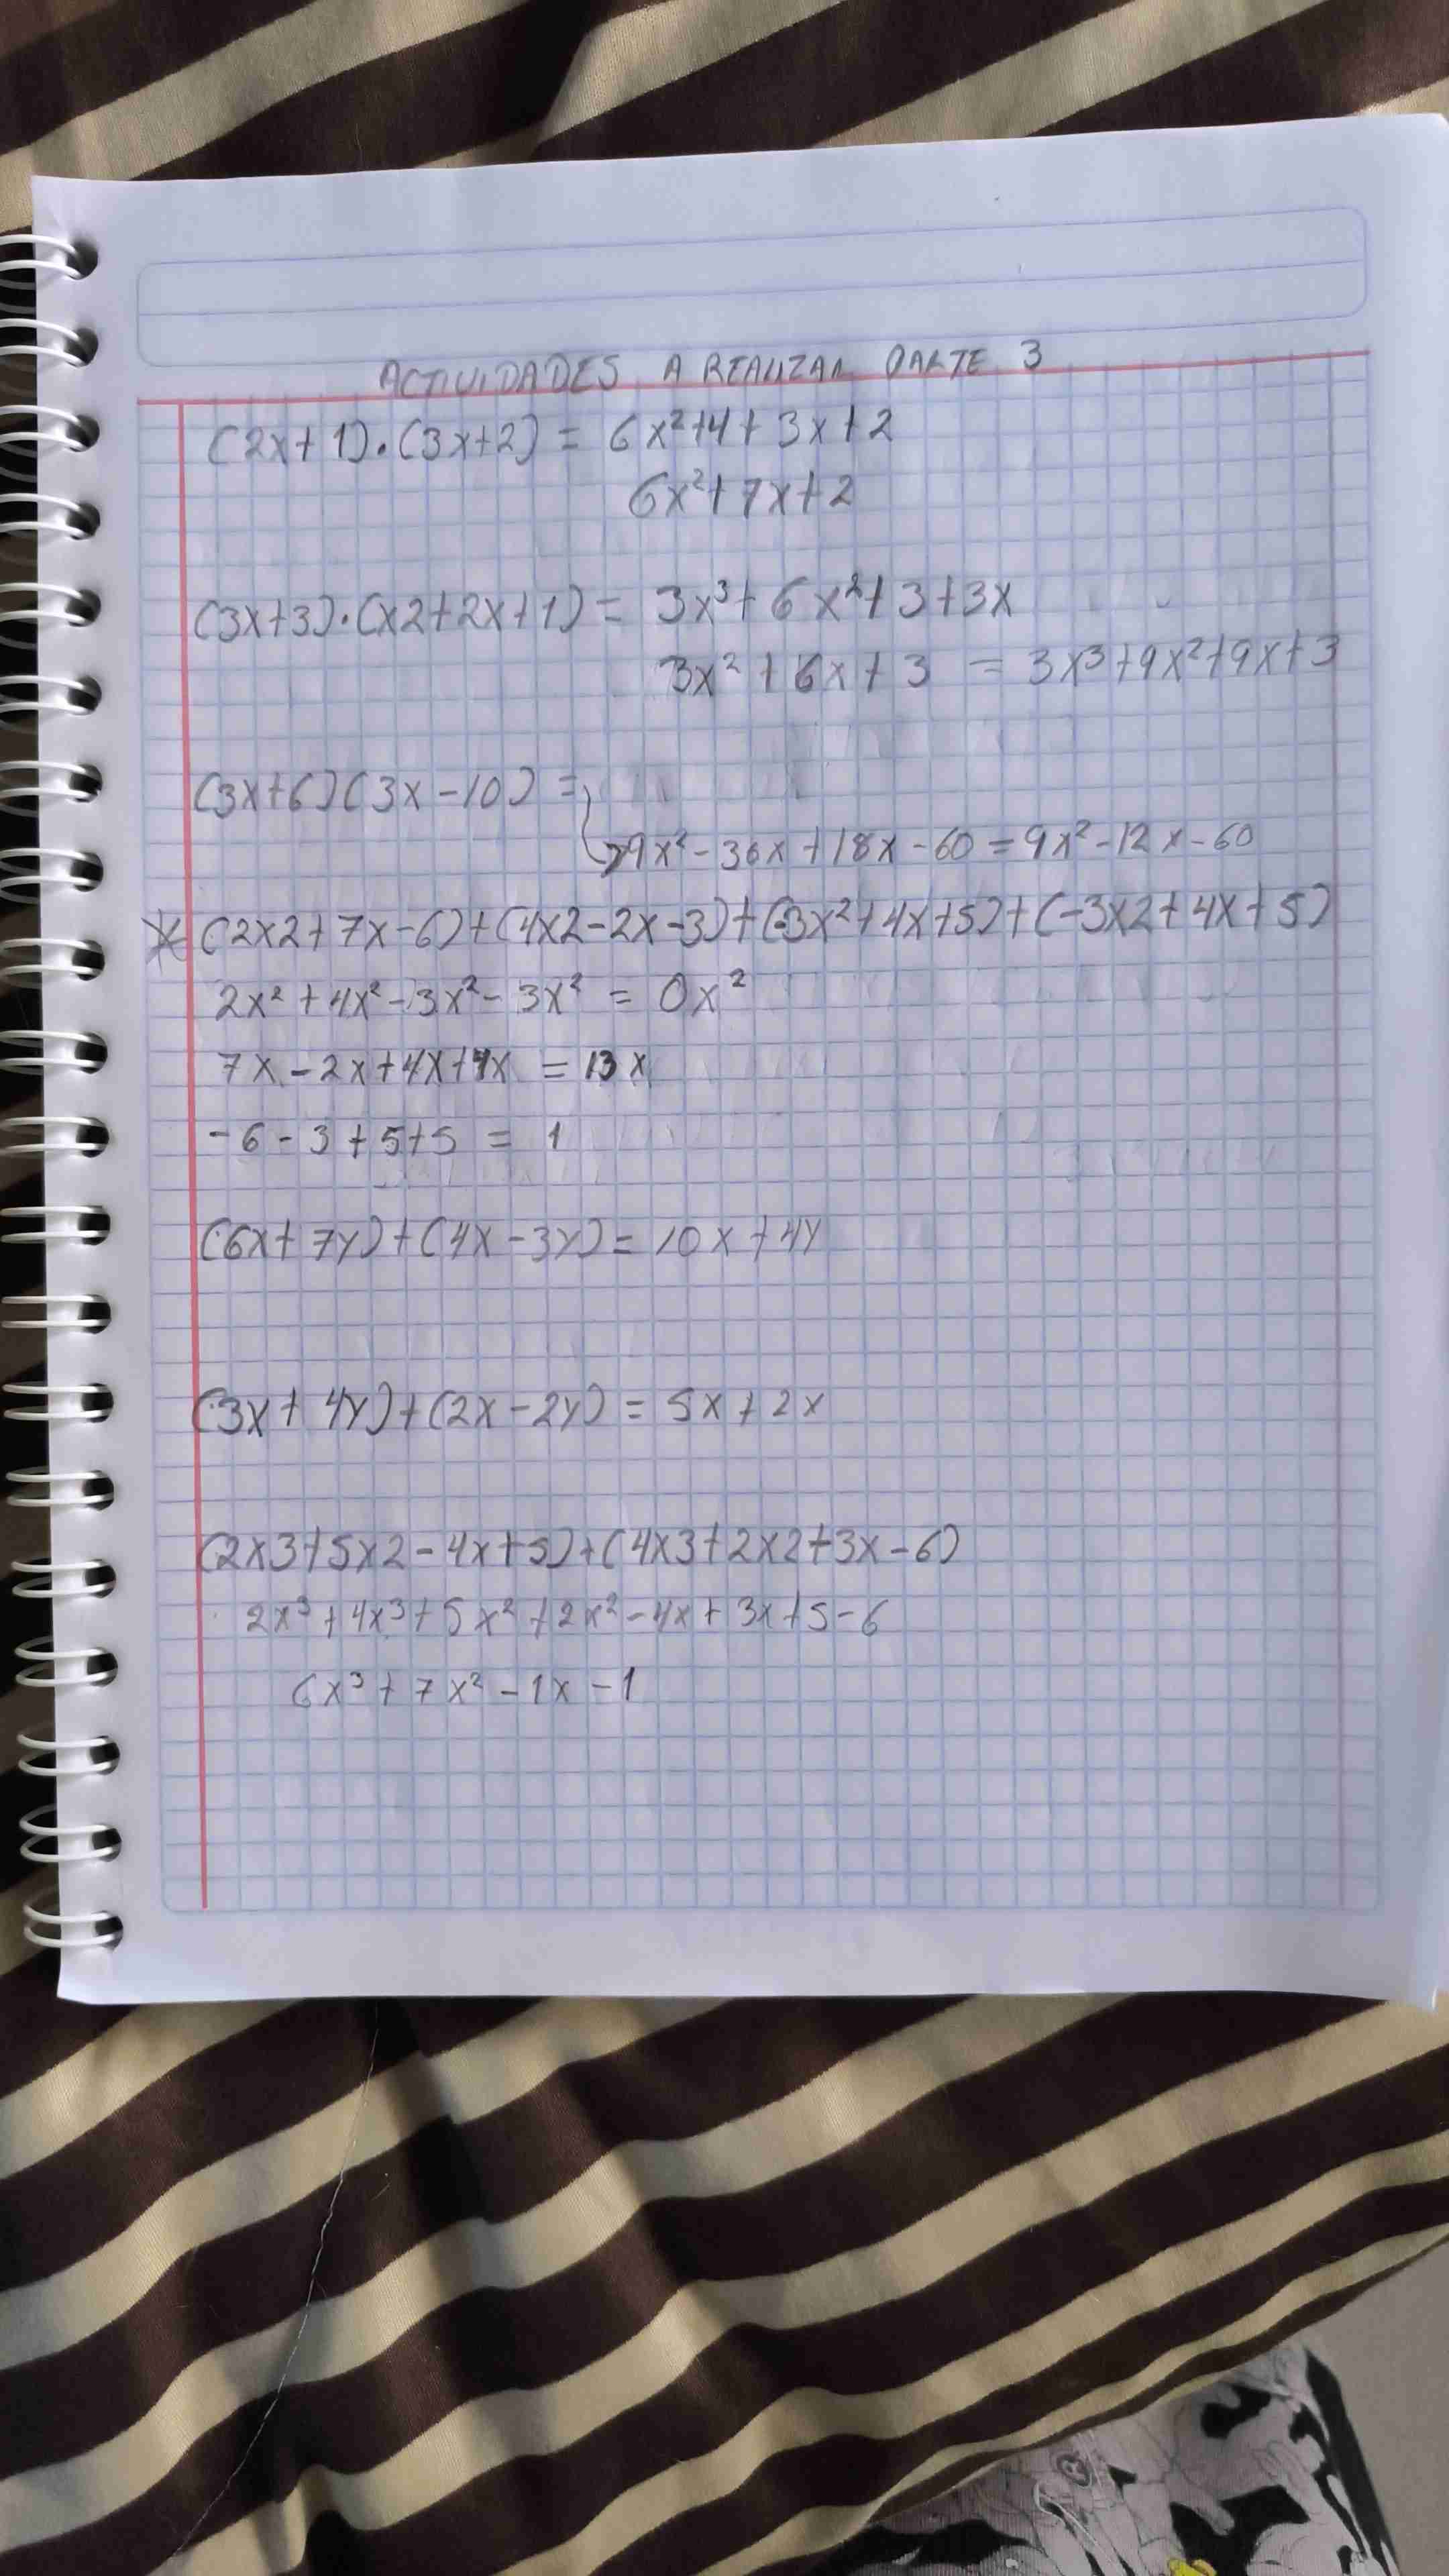 ACTIVIDADES A REALIZAR PARTE 3
(2x+1)·(3x+2) = 6x²+4+3x+2
6x²+7x+2
(3x+3)·(x2+2x+1) = 3x³+6x²+3+3x
3x²+6x+3 = 3x³+9x²+9x+3
(3x+6)(3x-10) =
9x²-30x+18x-60=9x²-12x-60
(2x2+7x-6)+(4x2-2x-3)+(-3x²+4x+5)+(-3x2+4x+5)
2x²+4x²-3x²-3x² = 0x²
7x-2x+4x+4x = 13x
-6-3+5+5 = 1
(6x+7y)+(4x-3y)= 10x+4y
(3x+4y)+(2x-2y) = 5x+2x
(2x3+5x2-4x+5)+(4x3+2x2+3x-6)
2x³+4x³+5x²+2x²-4x+3x+5-6
6x³+7x²-1x-1